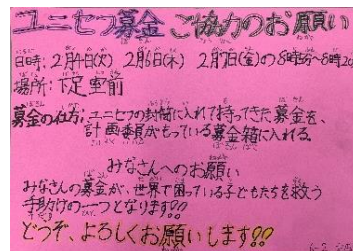 ユニセフ募金 ご協力のお願い
日時: 2月4日(火) 2月6日(木) 2月7日(金)の8時5分~8時20
場所: 下足室前
募金の仕方: ユニセフの封筒に入れて持ってきた募金を、
計画委員がもっている募金箱に入れる。
みなさんへのお願い
みなさんの募金が、世界で困っている子どもたちを救う
手助けの一つとなります!!
どうぞ、よろしくお願いします!!